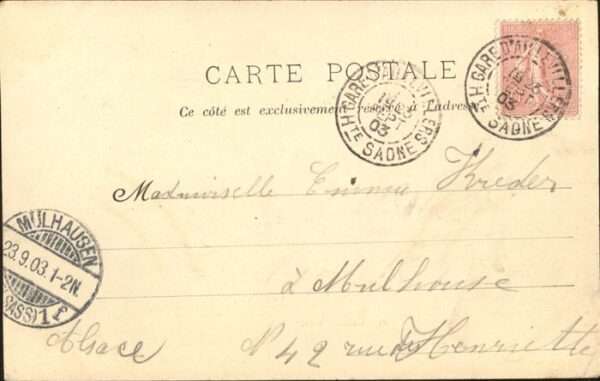 CARTE POSTALE
Ce côté est exclusivement réservé à l'adresse
GARE D'AILLEVILLERS
03
HTE SAONE
GARE D'AILLEVILLERS
03
HTE SAONE
Mademoiselle Emma Kreder
MÜLHAUSEN
23.9.03.1-2N.
1
à Mulhouse
Alsace N 42 rue Henriette